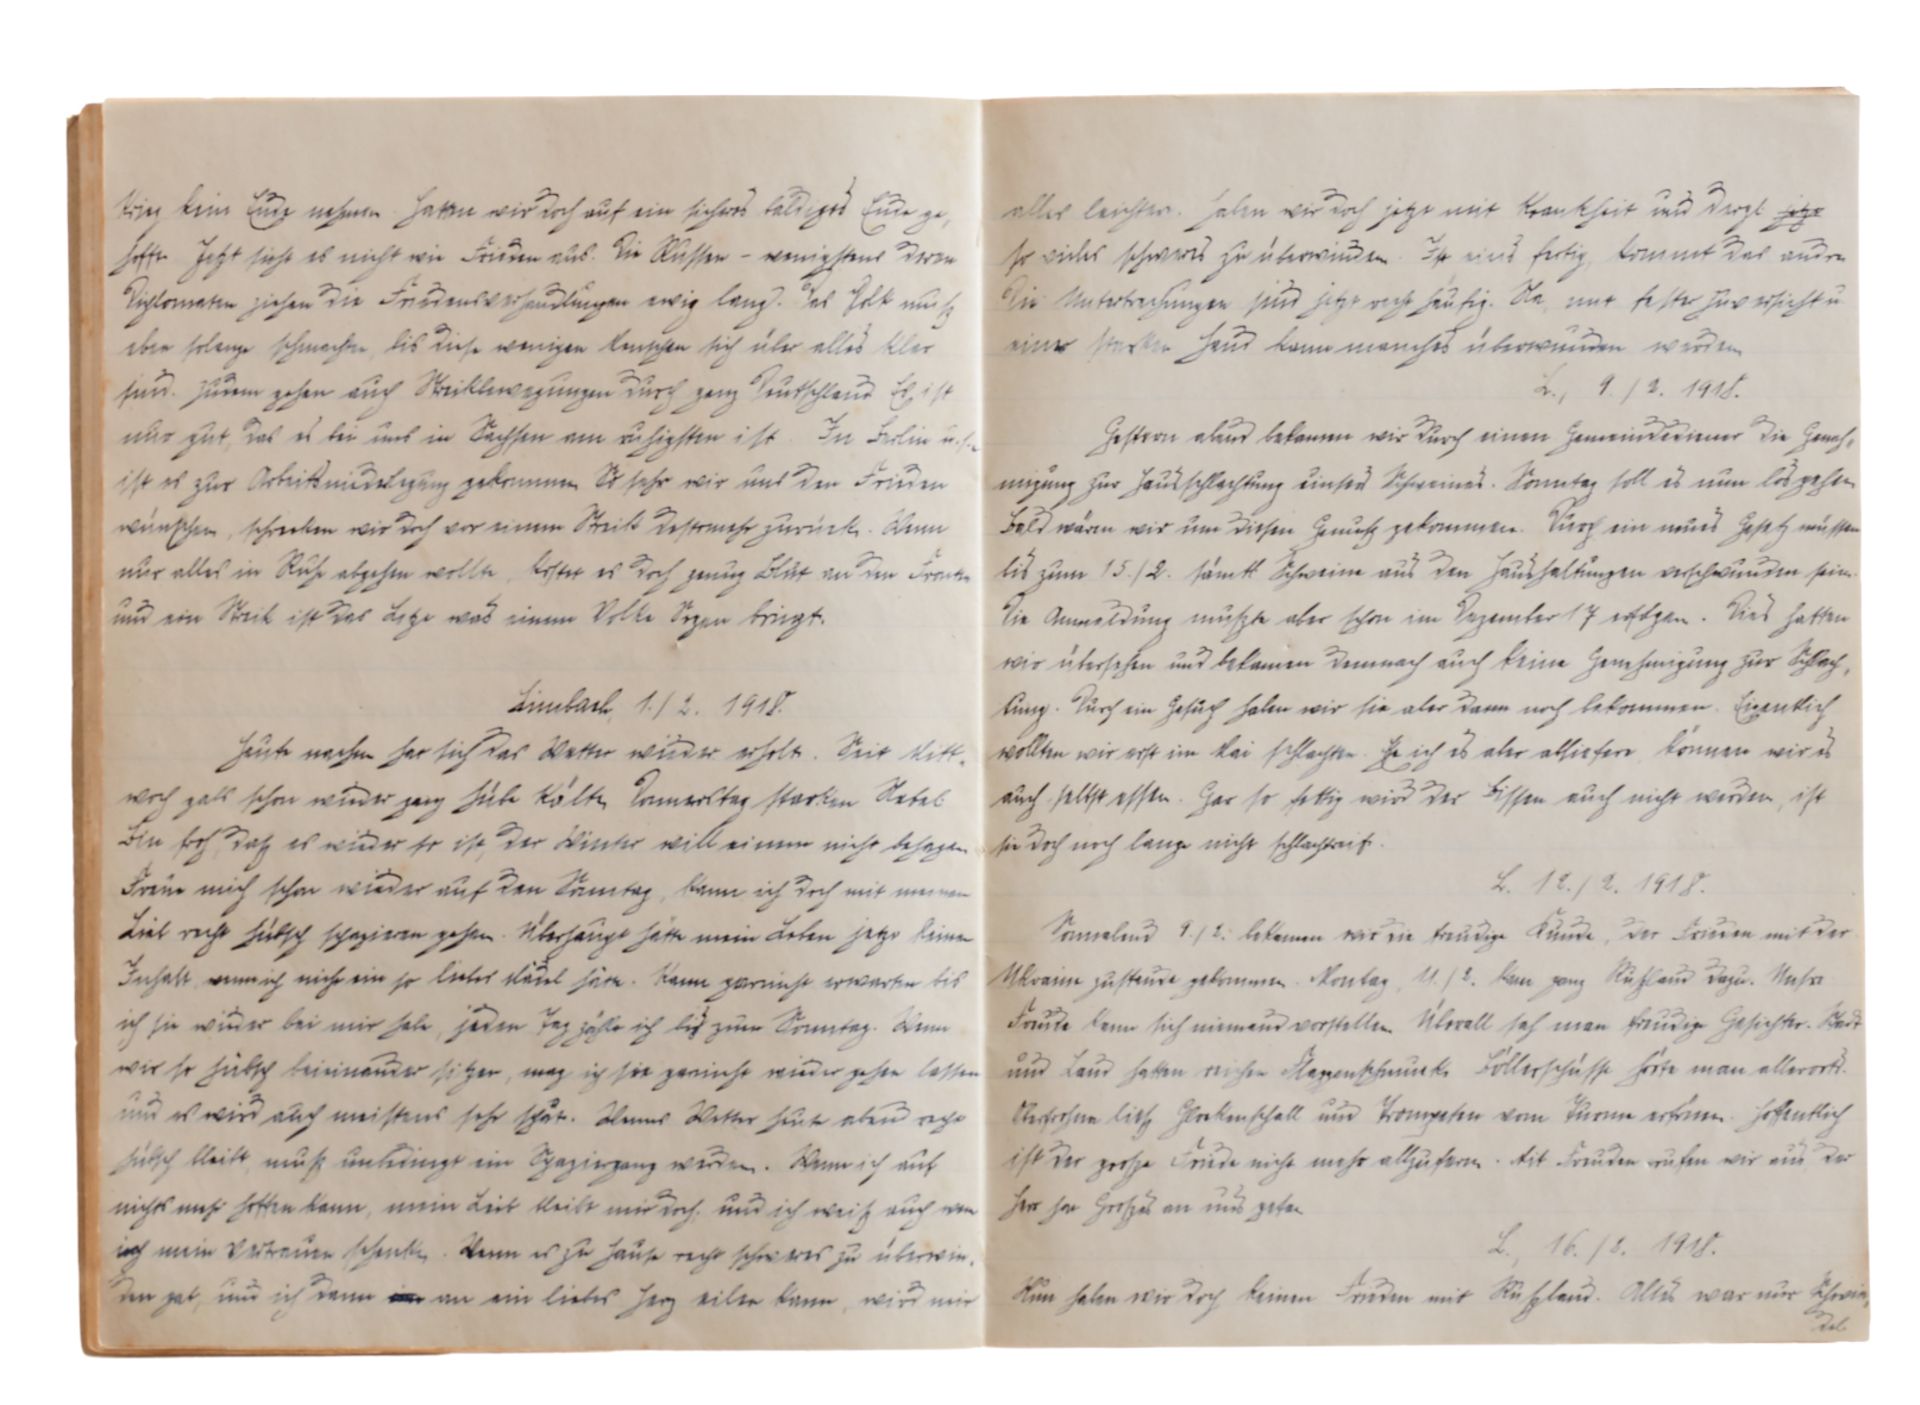 krieg kein Ende nehmen. Hatten wir doch auf ein sicheres baldiges Ende ge-
hofft. Jetzt sieht es nicht wie Frieden aus. Die Russen – wenigstens deren
Diplomaten ziehen die Friedensverhandlungen ewig lang. Das Volk muß
eben solange schmachten, bis diese wenigen Menschen sich über alles klar
sind. Zudem gehen auch Streikbewegungen durch ganz Deutschland. Es ist
nur gut, das es bei uns in Sachsen am ruhigsten ist. In Berlin u.s.w.
ist es zur Arbeitsniederlegung gekommen. So sehr wir uns den Frieden
wünschen, schrecken wir doch vor einem Streik destomehr zurück. Wenn
nur alles in Ruhe abgehen wollte, kostet es doch genug Blut an den Fronten
und ein Streik ist das Letzte was einem Volke Segen bringt.
Limbach, 1./2. 1918.
Heute nachm hat sich das Wetter wieder erholt. Seit Mitt-
woch gabs schon wieder ganz hübe Kälte, Donnerstag starken Nebel.
Bin froh, daß es wieder so ist, der Winter will einem nicht behagen.
Freue mich schon wieder auf den Sonntag, kann ich doch mit meinem
Lieb recht hübsch spazieren gehen. Überhaupt hätte mein Leben jetzt keinen
Inhalt, wenn ich nicht ein so liebes Mädel hätte. Kann garnicht erwarten bis
ich sie wieder bei mir habe, jeden Tag zähle ich bis zum Sonntag. Wenn
wir so hübsch beieinander sitzen, mag ich sie garnicht wieder gehen lassen
und es wird auch meistens sehr spät. Wenns Wetter heute abend recht
hübsch bleibt, muß unbedingt ein Spaziergang werden. Wenn ich auf
nichts mehr hoffen kann, mein Lieb bleibt mir doch. und ich weiß auch wem
ich mein Vertrauen schenke. Wenn es zu Hause recht schweres zu überwin-
den gab, und ich dann an ein liebes Herz eilen kann, wird mir
alles leichter. Haben wir doch jetzt mit Krankheit und dergl. jetzt
so vieles schweres zu überwinden. Ist eins fertig, kommt das andre.
Die Unterbrechungen sind jetzt recht häufig. Na, mit fester Zuversicht u.
einer starken Hand kann manches überwunden werden.
L., 9./2. 1918.
Gestern abend bekamen wir durch einen Gemeindediener die Geneh-
migung zur Hausschlachtung unseres Schweines. Sonntag soll es nun losgehen.
Bald wären wir um diesen Genuß gekommen. Durch ein neues Gesetz müssen
bis zum 15./2. sämtl. Schweine aus den Haushaltungen verschwunden sein.
Die Anmeldung mußte aber schon im Dezember 17 erfolgen. Dies hatten
wir übersehen und bekamen demnach auch keine Genehmigung zur Schlach-
tung. Durch ein Gesuch haben wir sie aber dann noch bekommen. Eigentlich
wollten wir erst im Mai schlachten. Eh ich es aber abliefere, können wir es
auch selbst essen. Gar so fettig wird der Bissen auch nicht werden, ist
sie doch noch lange nicht schlachtreif.
L. 12./2. 1918.
Sonnabend 9./2. bekamen wir die freudige Kunde, der Frieden mit der
Ukraine zustande gekommen. Montag, 11./2. kam ganz Rußland dazu. Unsre
Freude kann sich niemand vorstellen. Überall sah man freudige Gesichter. Stadt
und Land hatten reichen Flaggenschmuck. Böllerschüsse hörte man allerorts.
ließ Glockenschall und Trompeten vom Turme ertönen. Hoffentlich
ist der große Friede nicht mehr allzufern. Mit Freuden rufen wir aus der
Herr hat Großes an uns getan.
L., 16./2. 1918.
Nun haben wir doch keinen Frieden mit Rußland. Alles war nur Schwin-
del